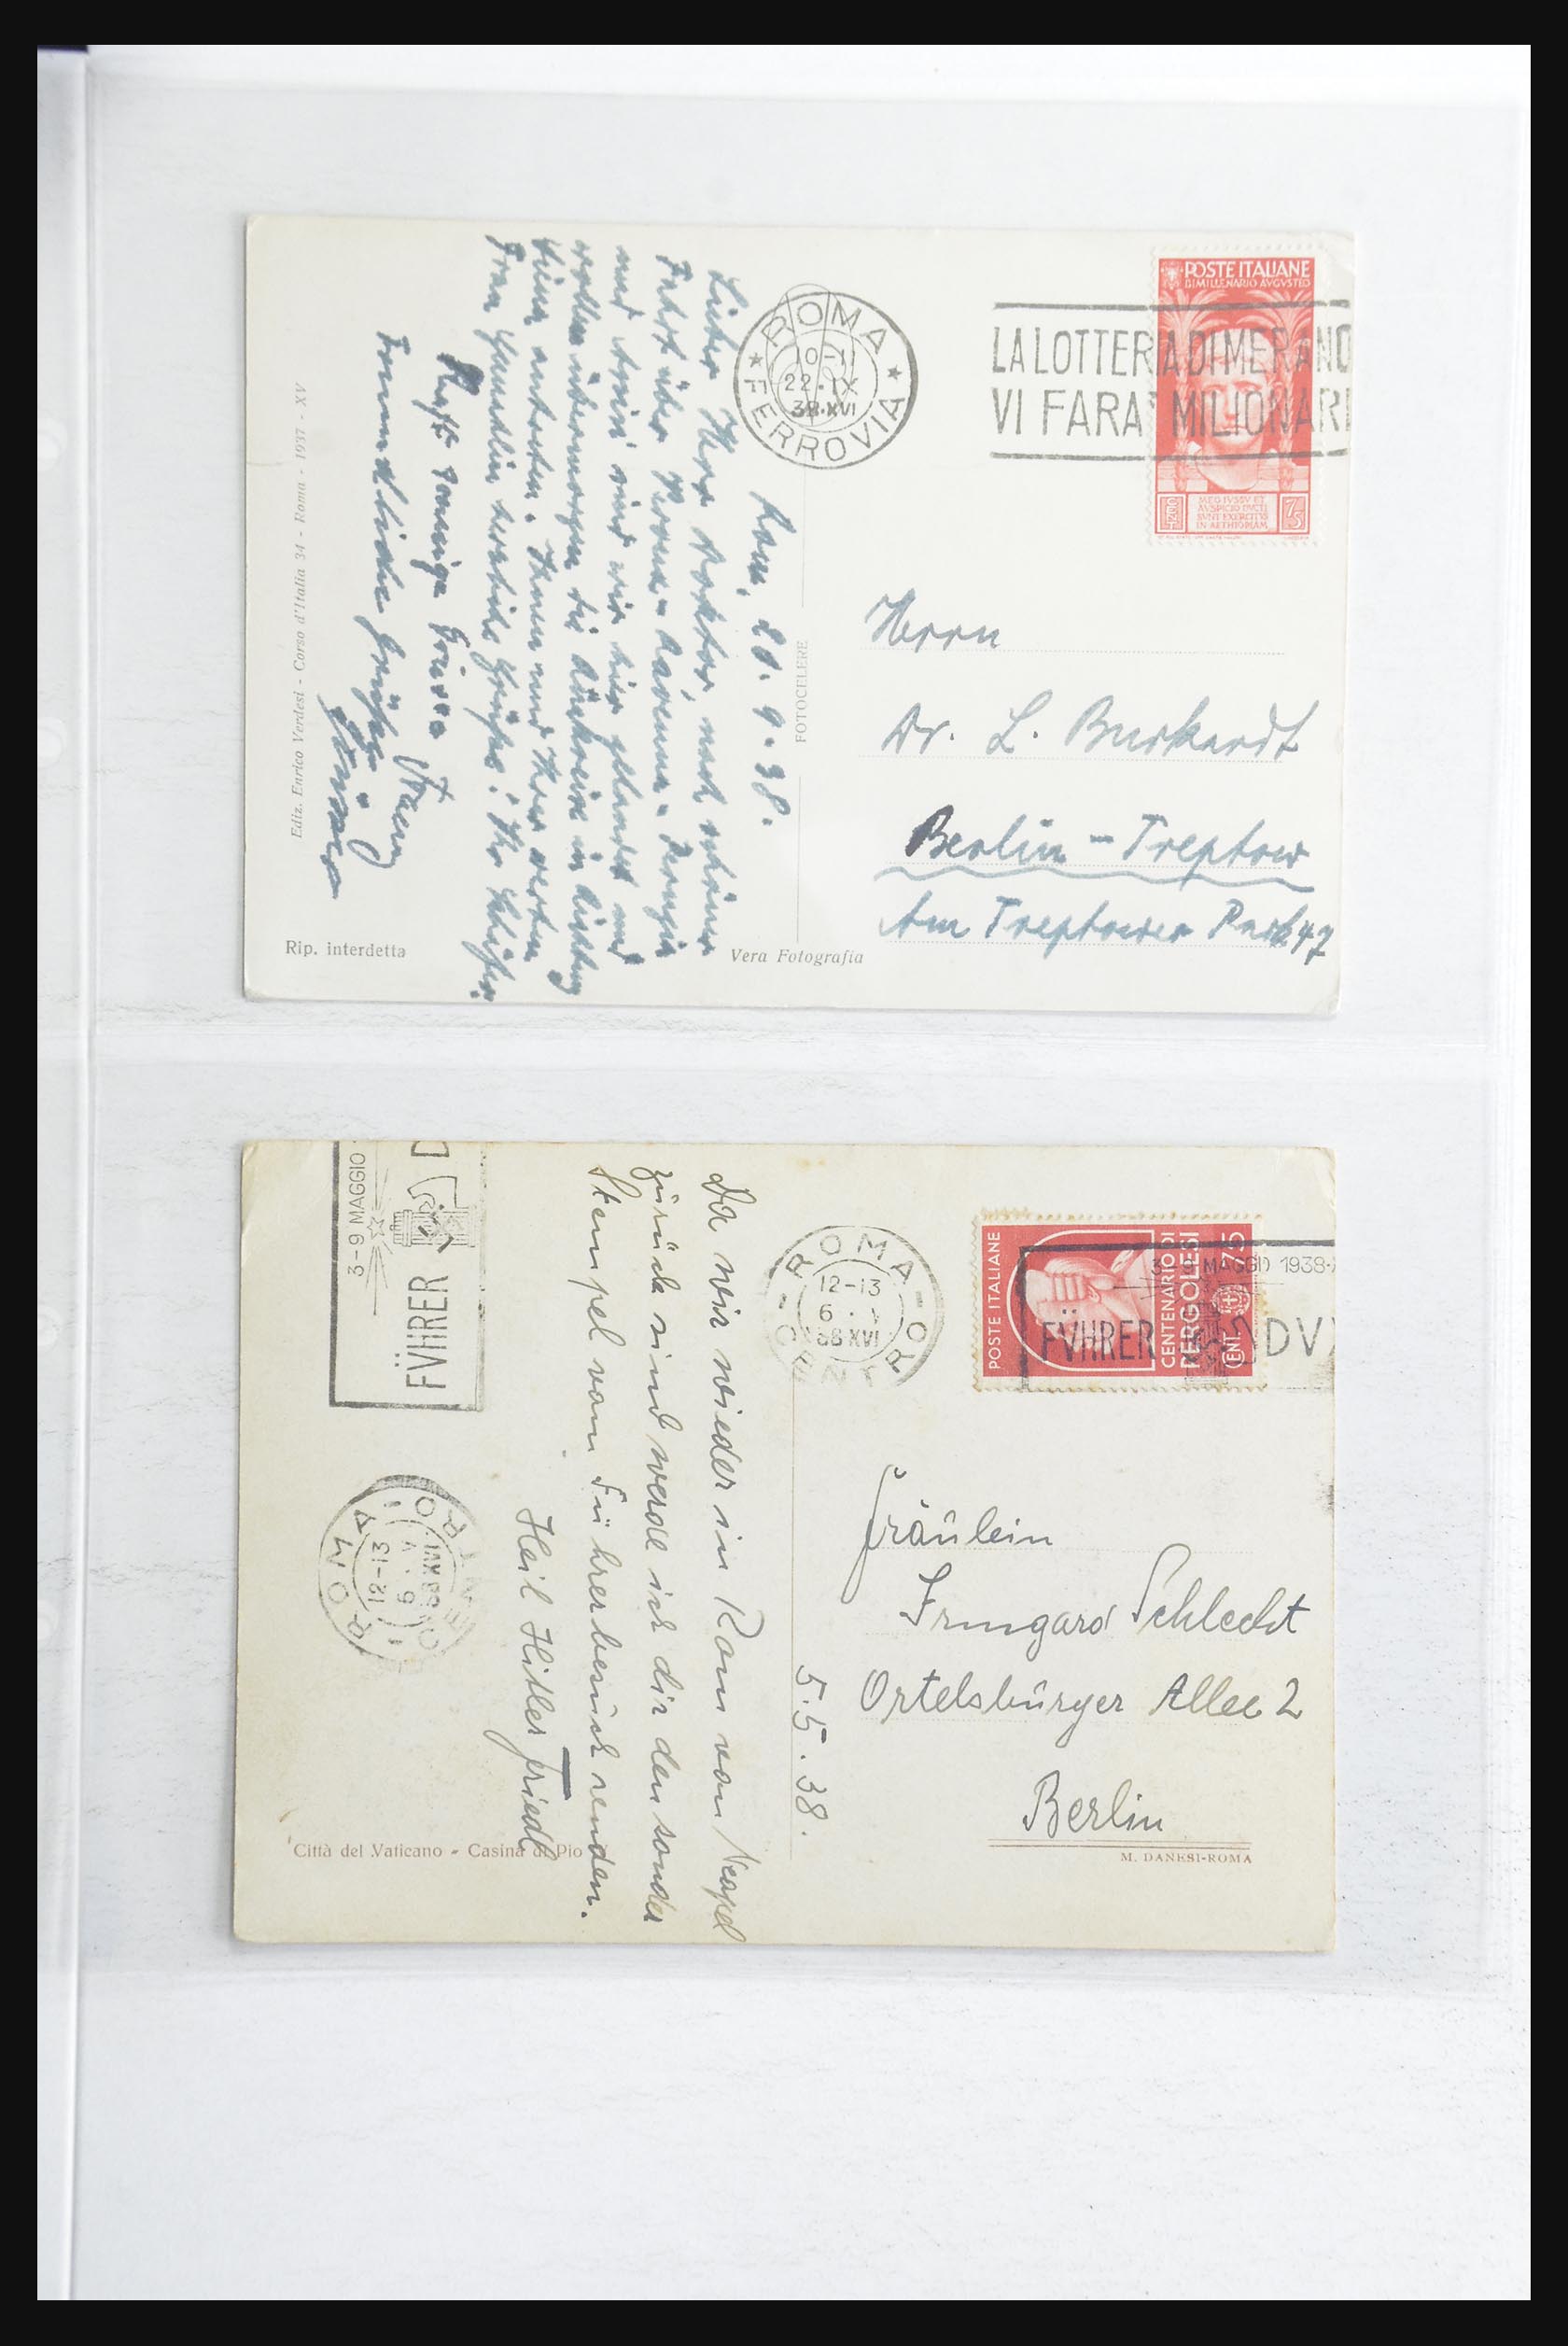 POSTE ITALIANE
BIMILLENARIO AVGVSTEO
CENT
MEO IVSSV ET
AVSPICIO DVCTI
SVNT EXERCITVS
IN AETHIOPIAM
75
ROMA
10-11
22·IX
38·XVI
FERROVIA
LA LOTTERIA DI MERANO
VI FARA' MILIONARI
Rom,
9.38.
Lieber Herr Doktor, nach schöner
Fahrt über Ravenna - Perugia
und Assisi sind wir hier gelandet und
wollen übermorgen die Rückreise in Richtung
antreten. Ihnen und Ihrer werten
Frau Gemahlin herzliche Grüsse! Ihr
Freundliche Grüsse
Herrn
Dr. L. Burkardt
Berlin - Treptow
Am Treptower Park 47
Ediz. Enrico Verdesi - Corso d'Italia 34 - Roma - 1937 - XV
FOTOCELERE
Rip. interdetta
Vera Fotografia
3-9 MAGGIO
FVHRER D
ROMA CENTRO
12-13
6 · V
38 XVI
POSTE ITALIANE
CENTENARIO DI
PERGOLESI
CENT 75
3-9 MAGGIO 1938-
FVHRER DVX
ROMA CENTRO
12-13
6 · V
38 XVI
5.5.38.
Da wir wieder in Rom von Neapel
zurück sind werde ich dir den sonder
Stempel vom Führerbesuch senden.
Heil Hitler Friedl
Fräulein
Irmgard Schlecht
Ortelsbürger Allee 2
Berlin
Città del Vaticano - Casina di Pio
M. DANESI-ROMA